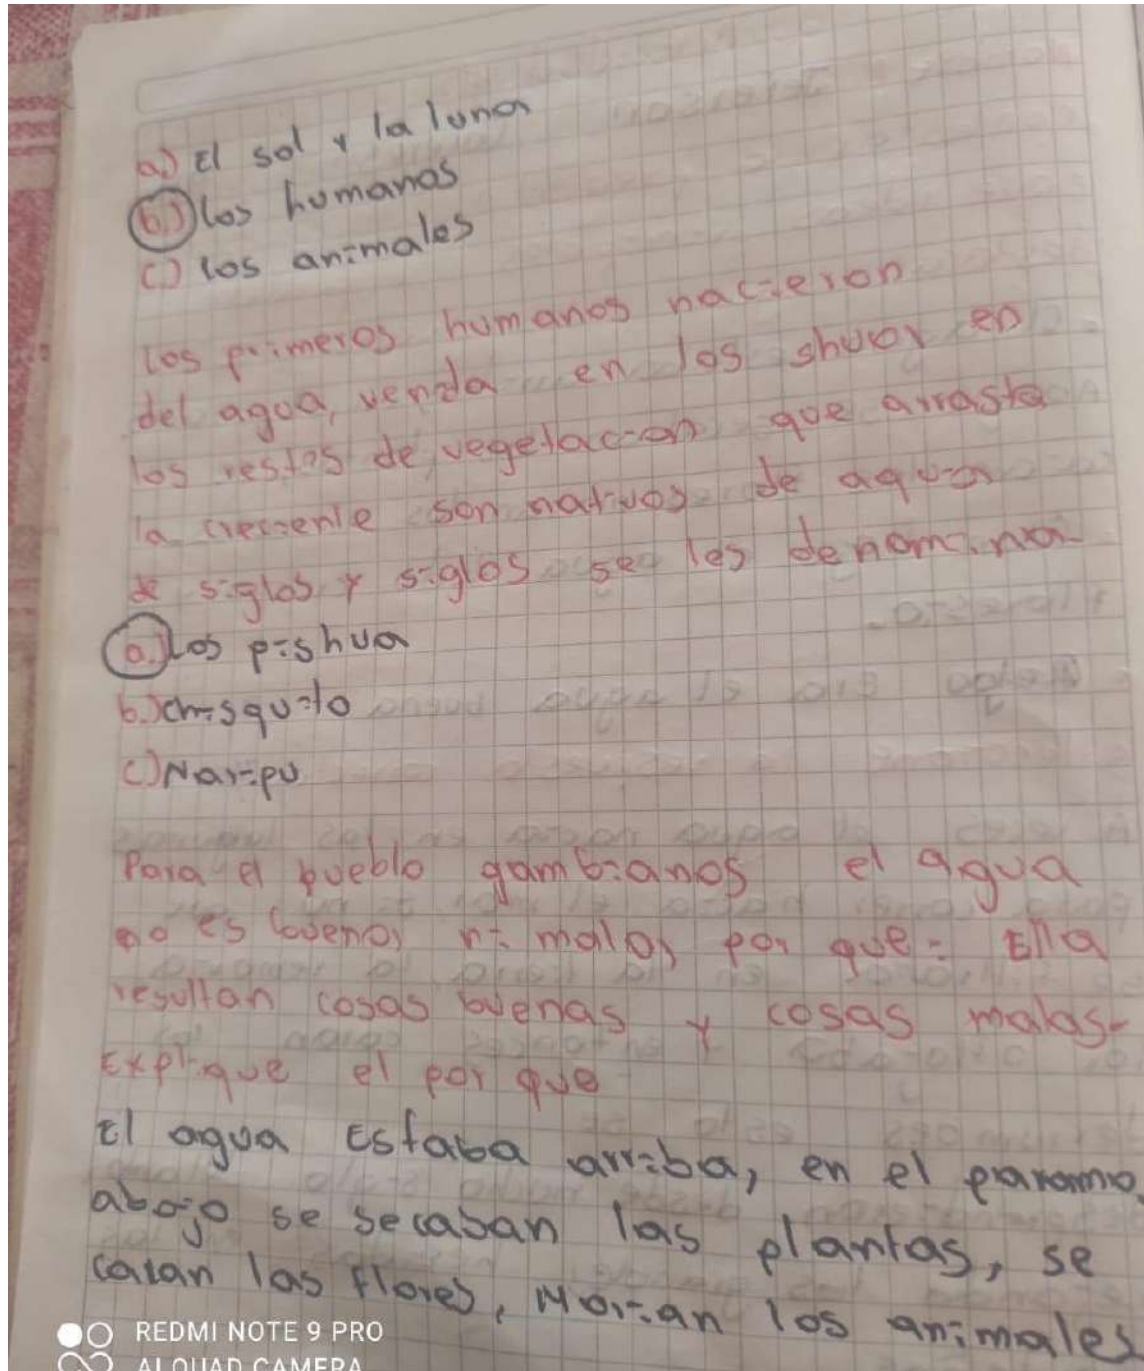 a.) El sol y la luna
b.) los humanos
c.) los animales
los primeros humanos nacieron
del agua, venda en los shuor en
los restos de vegetacion que arrasta
la creciente son nativos de aqui a
de siglos y siglos se les denomina
a.) los pishua
b.) chisquito
c.) Naripu
Para el pueblo gambianos el agua
no es buenos ni malos por que: Ella
resultan cosas buenas y cosas malas-
Explique el por que
El agua Estaba arriba, en el paramo
abajo se secaban las plantas, se
caian las flores, Morian los animales
REDMI NOTE 9 PRO
AI QUAD CAMERA